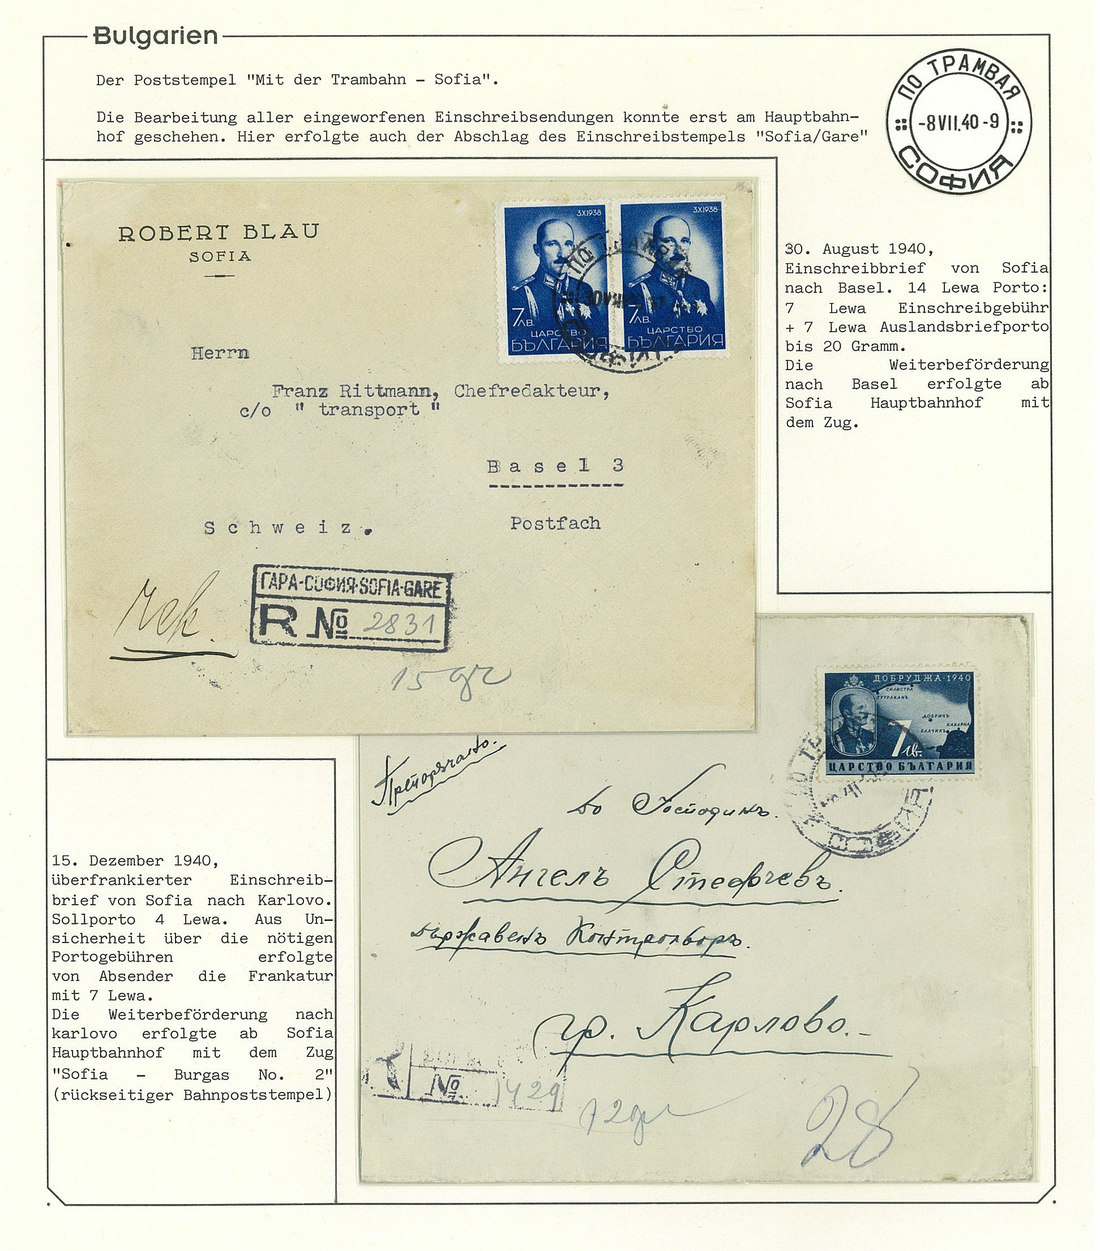 Bulgarien
Der Poststempel "Mit der Trambahn – Sofia".
Die Bearbeitung aller eingeworfenen Einschreibsendungen konnte erst am Hauptbahn-
hof geschehen. Hier erfolgte auch der Abschlag des Einschreibstempels "Sofia/Gare"
ПО ТРАМВАЯ
-8 VII.40-9
СОФИЯ
ROBERT BLAU
SOFIA
3XI1938
7 ЛВ.
ЦАРСТВО
БЪЛГАРИЯ
3XI1938
7 ЛВ.
ЦАРСТВО
БЪЛГАРИЯ
Herrn
Franz Rittmann, Chefredakteur,
c/o " transport "
Basel 3
Postfach
Schweiz.
rek.
ГАРА-СОФИЯ-SOFIA-GARE
R № 2831
15 gr
30. August 1940,
Einschreibbrief von Sofia
nach Basel. 14 Lewa Porto:
7 Lewa Einschreibgebühr
+ 7 Lewa Auslandsbriefporto
bis 20 Gramm.
Die Weiterbeförderung
nach Basel erfolgte ab
Sofia Hauptbahnhof mit
dem Zug.
ДОБРУДЖА·1940
СИЛИСТРА
ТУТРАКАНЪ
ДОБРИЧЪ
КАВАРНА
БАЛЧИКЪ
7 лв.
ЦАРСТВО БЪЛГАРИЯ
Препоръчано.
до Господинъ.
Ангелъ Стефчевъ.
държавенъ Контрольоръ.
гр. Карлово.-
№ 1429
12 gr
28
15. Dezember 1940,
überfrankierter Einschreib-
brief von Sofia nach Karlovo.
Sollporto 4 Lewa. Aus Un-
sicherheit über die nötigen
Portogebühren erfolgte
von Absender die Frankatur
mit 7 Lewa.
Die Weiterbeförderung nach
karlovo erfolgte ab Sofia
Hauptbahnhof mit dem Zug
"Sofia – Burgas No. 2"
(rückseitiger Bahnpoststempel)